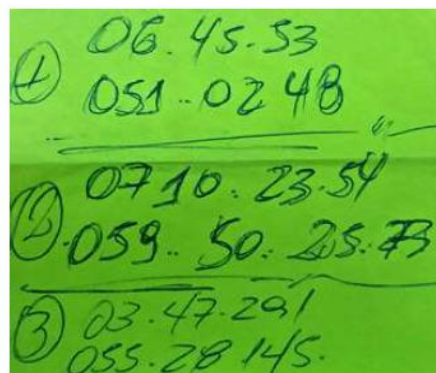 06.45.53
① 051..0248
0710.23.54
② .059.. 50.. 25.73
03.47.291
③ 055.28 145.